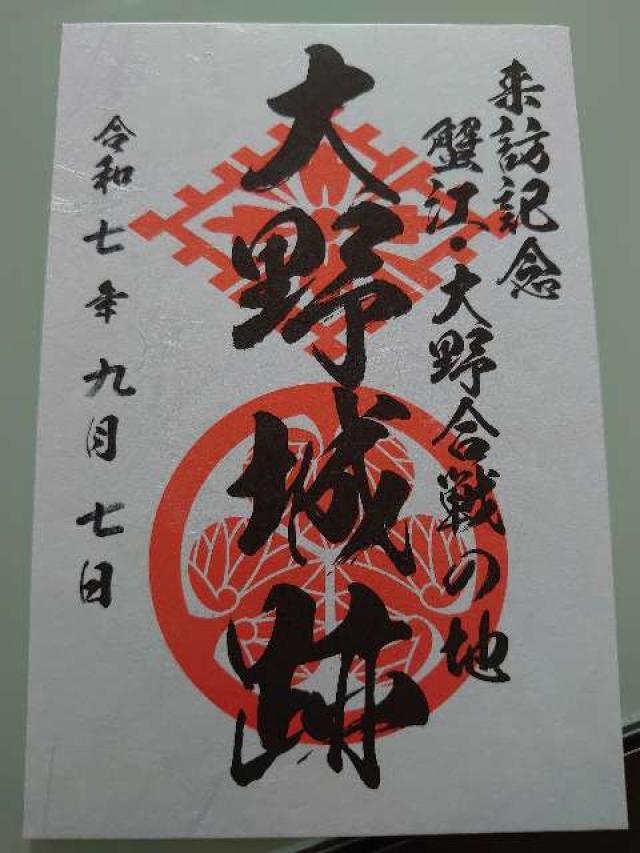 来訪記念
蟹江・大野合戦の地
大野城跡
令和七年九月七日